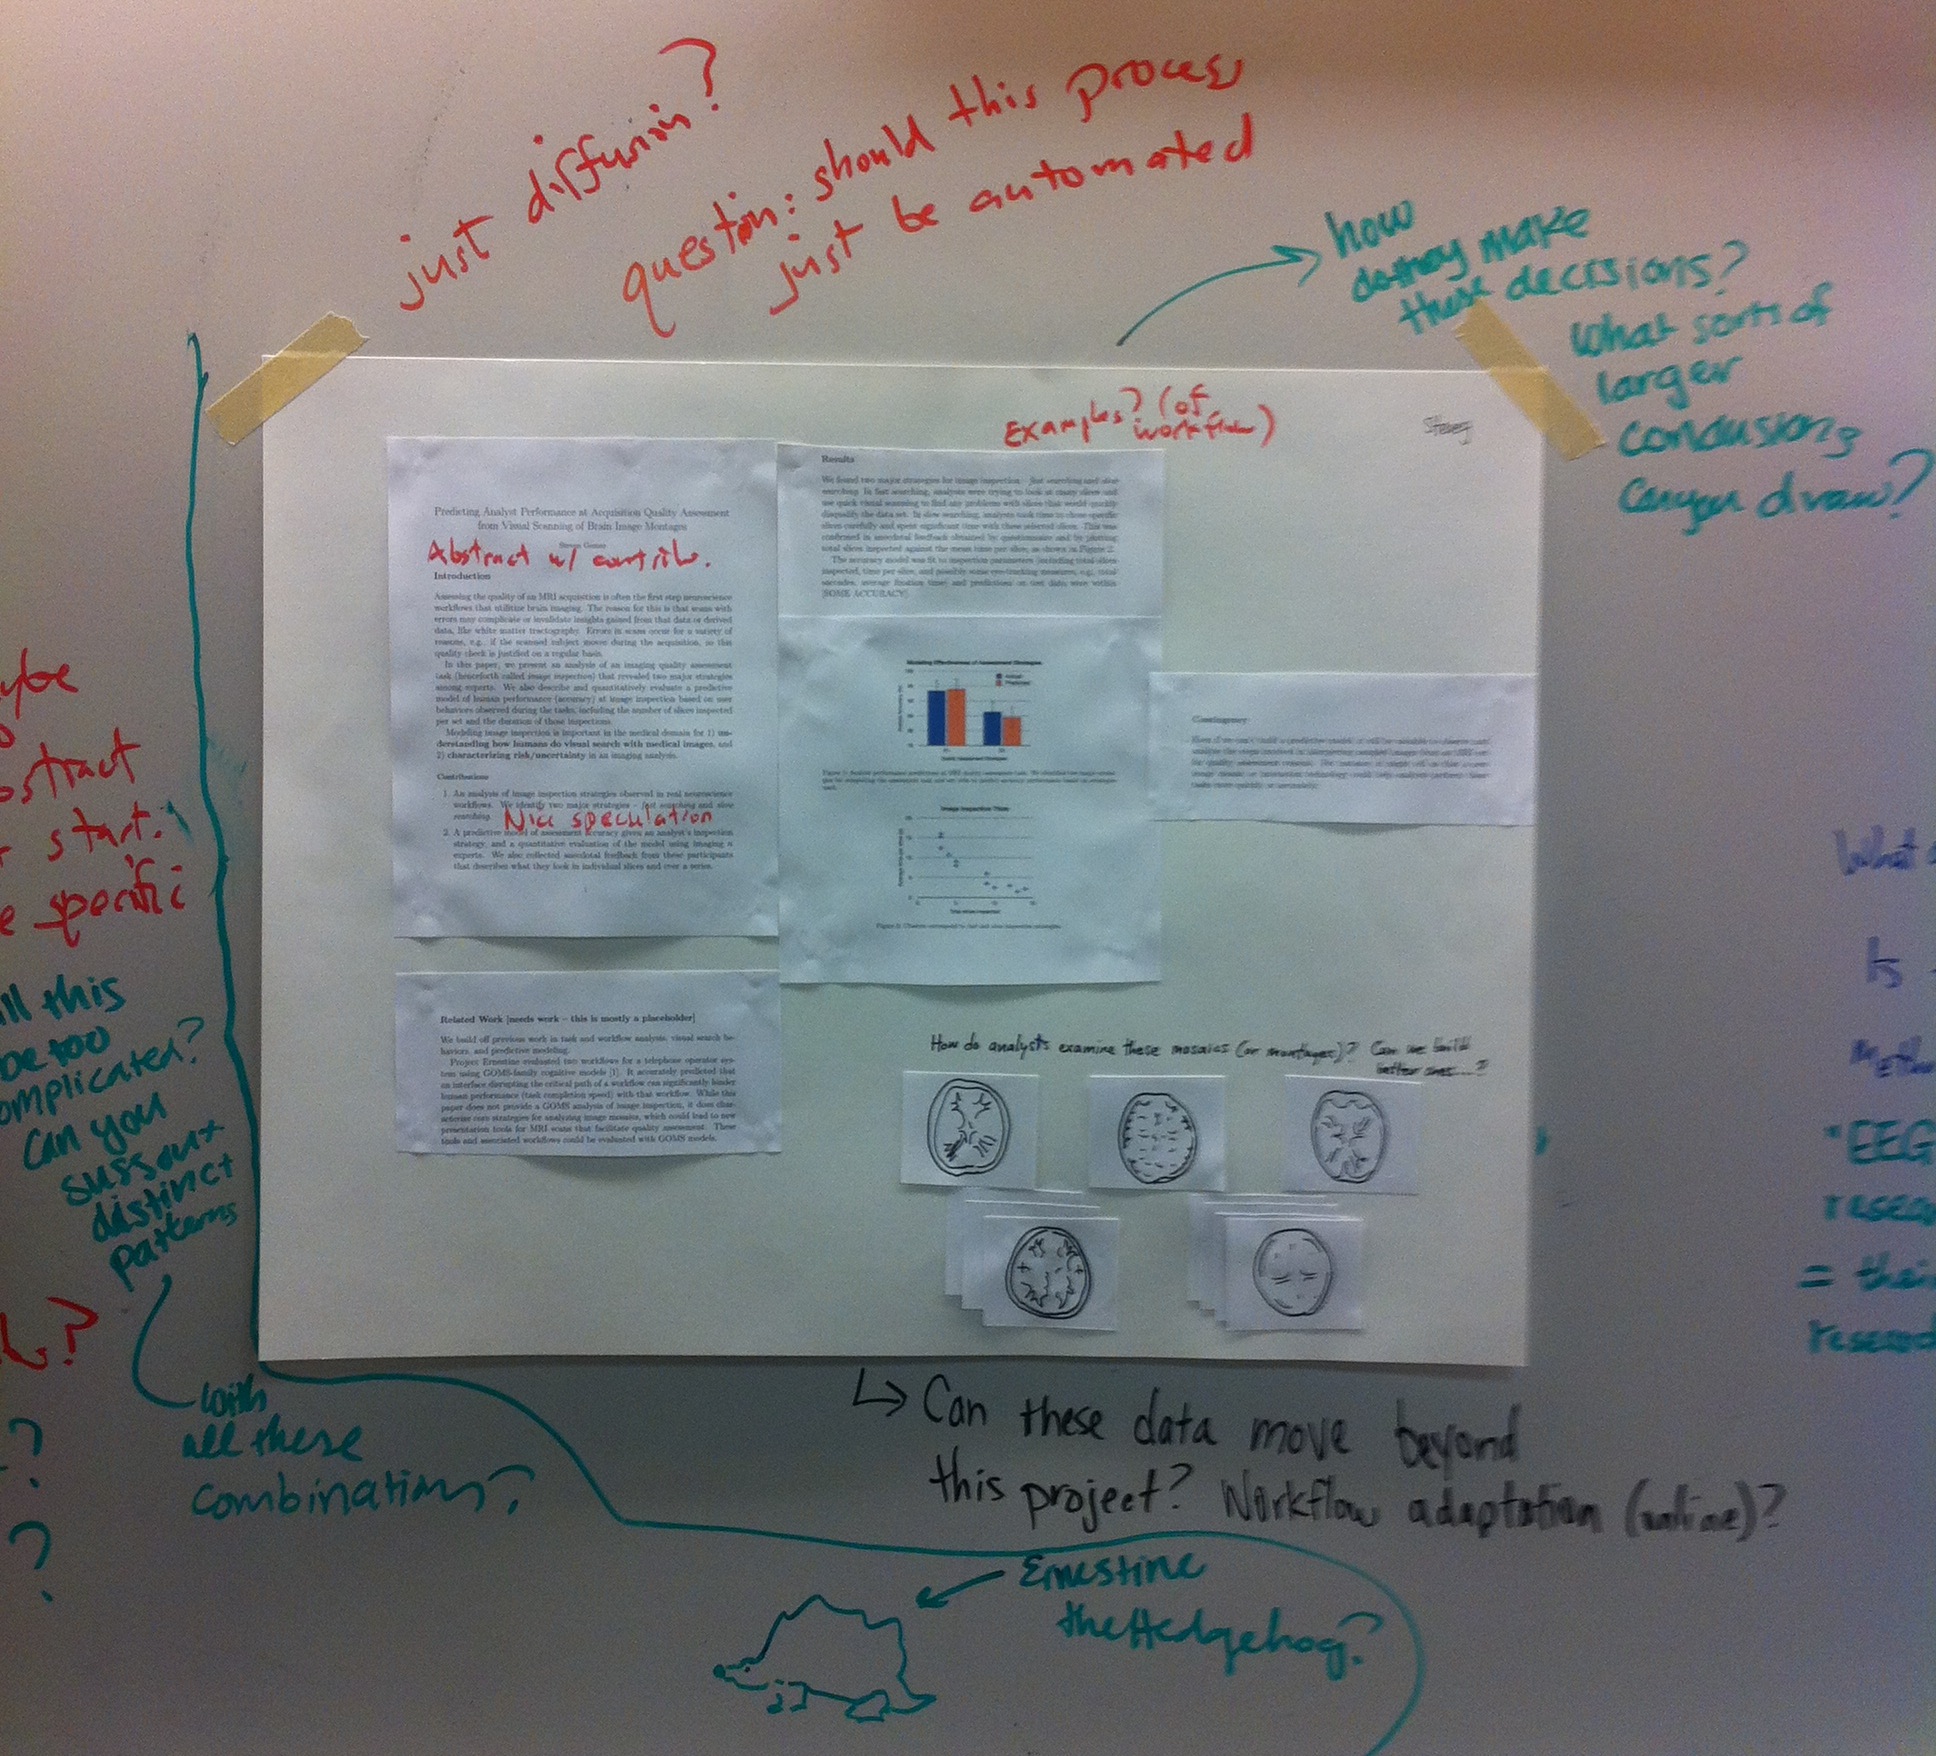 just diffusion?
question: should this process
just be automated
how
do they make
these decisions?
What sorts of
larger
conclusions
can you draw?
Examples? (of
workflow)
Steven
Predicting Analyst Performance at Acquisition Quality Assessment
from Visual Scanning of Brain Image Montages
Abstract w/ contrib.
Introduction
Assessing the quality of an MRI acquisition is often the first step neuroscience
workflows that utilitize brain imaging. The reason for this is that scans with
errors may complicate or invalidate insights gained from that data or derived
data, like white matter tractography. Errors in scans occur for a variety of
reasons, e.g. if the scanned subject moves during the acquisition, so this
quality check is justified on a regular basis.
In this paper, we present an analysis of an imaging quality assessment
task (henceforth called image inspection) that revealed two major strategies
among experts. We also describe and quantitatively evaluate a predictive
model of human performance (accuracy) at image inspection based on user
behaviors observed during the tasks, including the number of slices inspected
per set and the duration of those inspections.
Modeling image inspection is important in the medical domain for 1) un-
derstanding how humans do visual search with medical images, and
2) characterizing risk/uncertainty in an imaging analysis.
Contributions
1. An analysis of image inspection strategies observed in real neuroscience
workflows. We identify two major strategies – fast searching and slow
searching.
Nice speculation
2. A predictive model of assessment accuracy given an analyst's inspection
strategy, and a quantitative evaluation of the model using imaging
experts. We also collected anecdotal feedback from these participants
that describes what they look in individual slices and over a series.
1
Related Work [needs work – this is mostly a placeholder]
We build off previous work in task and workflow analysis, visual search be-
haviors, and predictive modeling.
Project Ernestine evaluated two workflows for a telephone operator sys-
tem using GOMS-family cognitive models [1]. It accurately predicted that
an interface disrupting the critical path of a workflow can significantly hinder
human performance (task completion speed) with that workflow. While this
paper does not provide a GOMS analysis of image inspection, it does char-
acterize core strategies for analyzing image mosaics, which could lead to new
presentation tools for MRI scans that facilitate quality assessment. These
tools and associated workflows could be evaluated with GOMS models.
Results
We found two major strategies for image inspection – fast searching and slow
searching. In fast searching, analysts were trying to look at many slices and
use quick visual scanning to find any problems with slices that would quickly
disqualify the data set. In slow searching, analysts took time to chose specific
slices carefully and spent significant time with these selected slices. This was
confirmed in anecdotal feedback obtained by questionnaire and by plotting
total slices inspected against the mean time per slice, as shown in Figure 2.
The accuracy model was fit to inspection parameters (including total slices
inspected, time per slice, and possibly some eye-tracking measures, e.g., total
saccades, average fixation time) and predictions on test data were within
[SOME ACCURACY].
Modeling Effectiveness of Assessment Strategies
Actual
Predicted
Image Inspection Times
Total slices inspected
Contingency
How do analysts examine these mosaics (or montages)? Can we build
better ones....?
Can these data move beyond
this project? Workflow adaptation (online)?
Ernestine
the Hedgehog?
start.
specific
this
be too
complicated?
can you
suss out
distinct
patterns
with
all these
combinations?
?
?
What
Is
EEG
= their